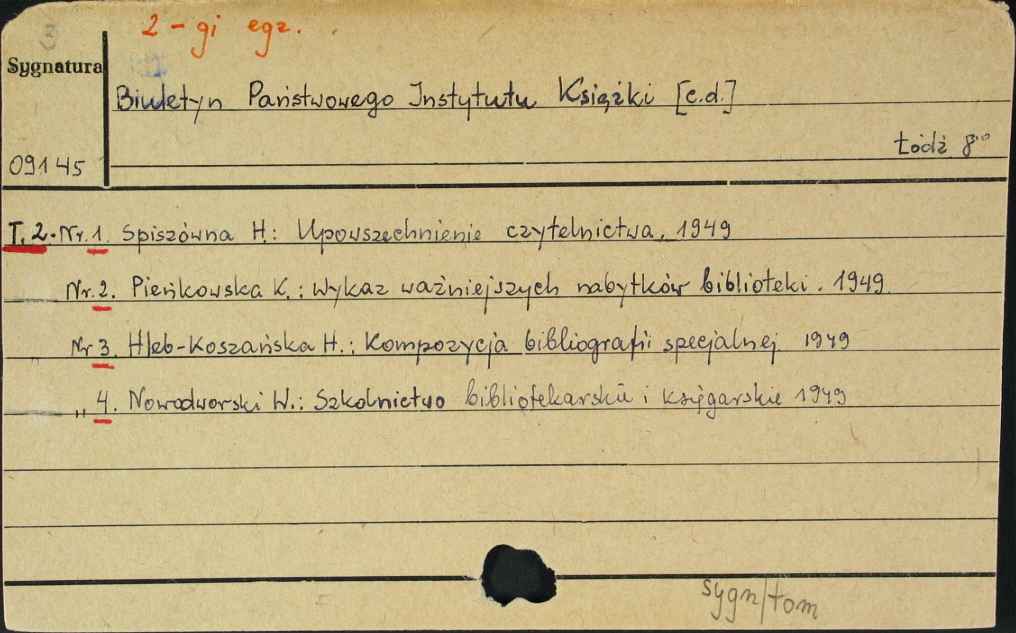 2-gi egz.
Sygnatura
Biuletyn Państwowego Instytutu Książki [c.d.]
Łódź 8°
09145
T. 2. Nr. 1. Spiszówna H.: Upowszechnienie czytelnictwa. 1949
Nr. 2. Pieńkowska K.: Wykaz ważniejszych nabytków biblioteki. 1949
Nr 3. Hleb-Koszańska H.: Kompozycja bibliografii specjalnej 1949
„ 4. Nowodworski W.: Szkolnictwo bibliotekarskie i księgarskie 1949
sygn/tom